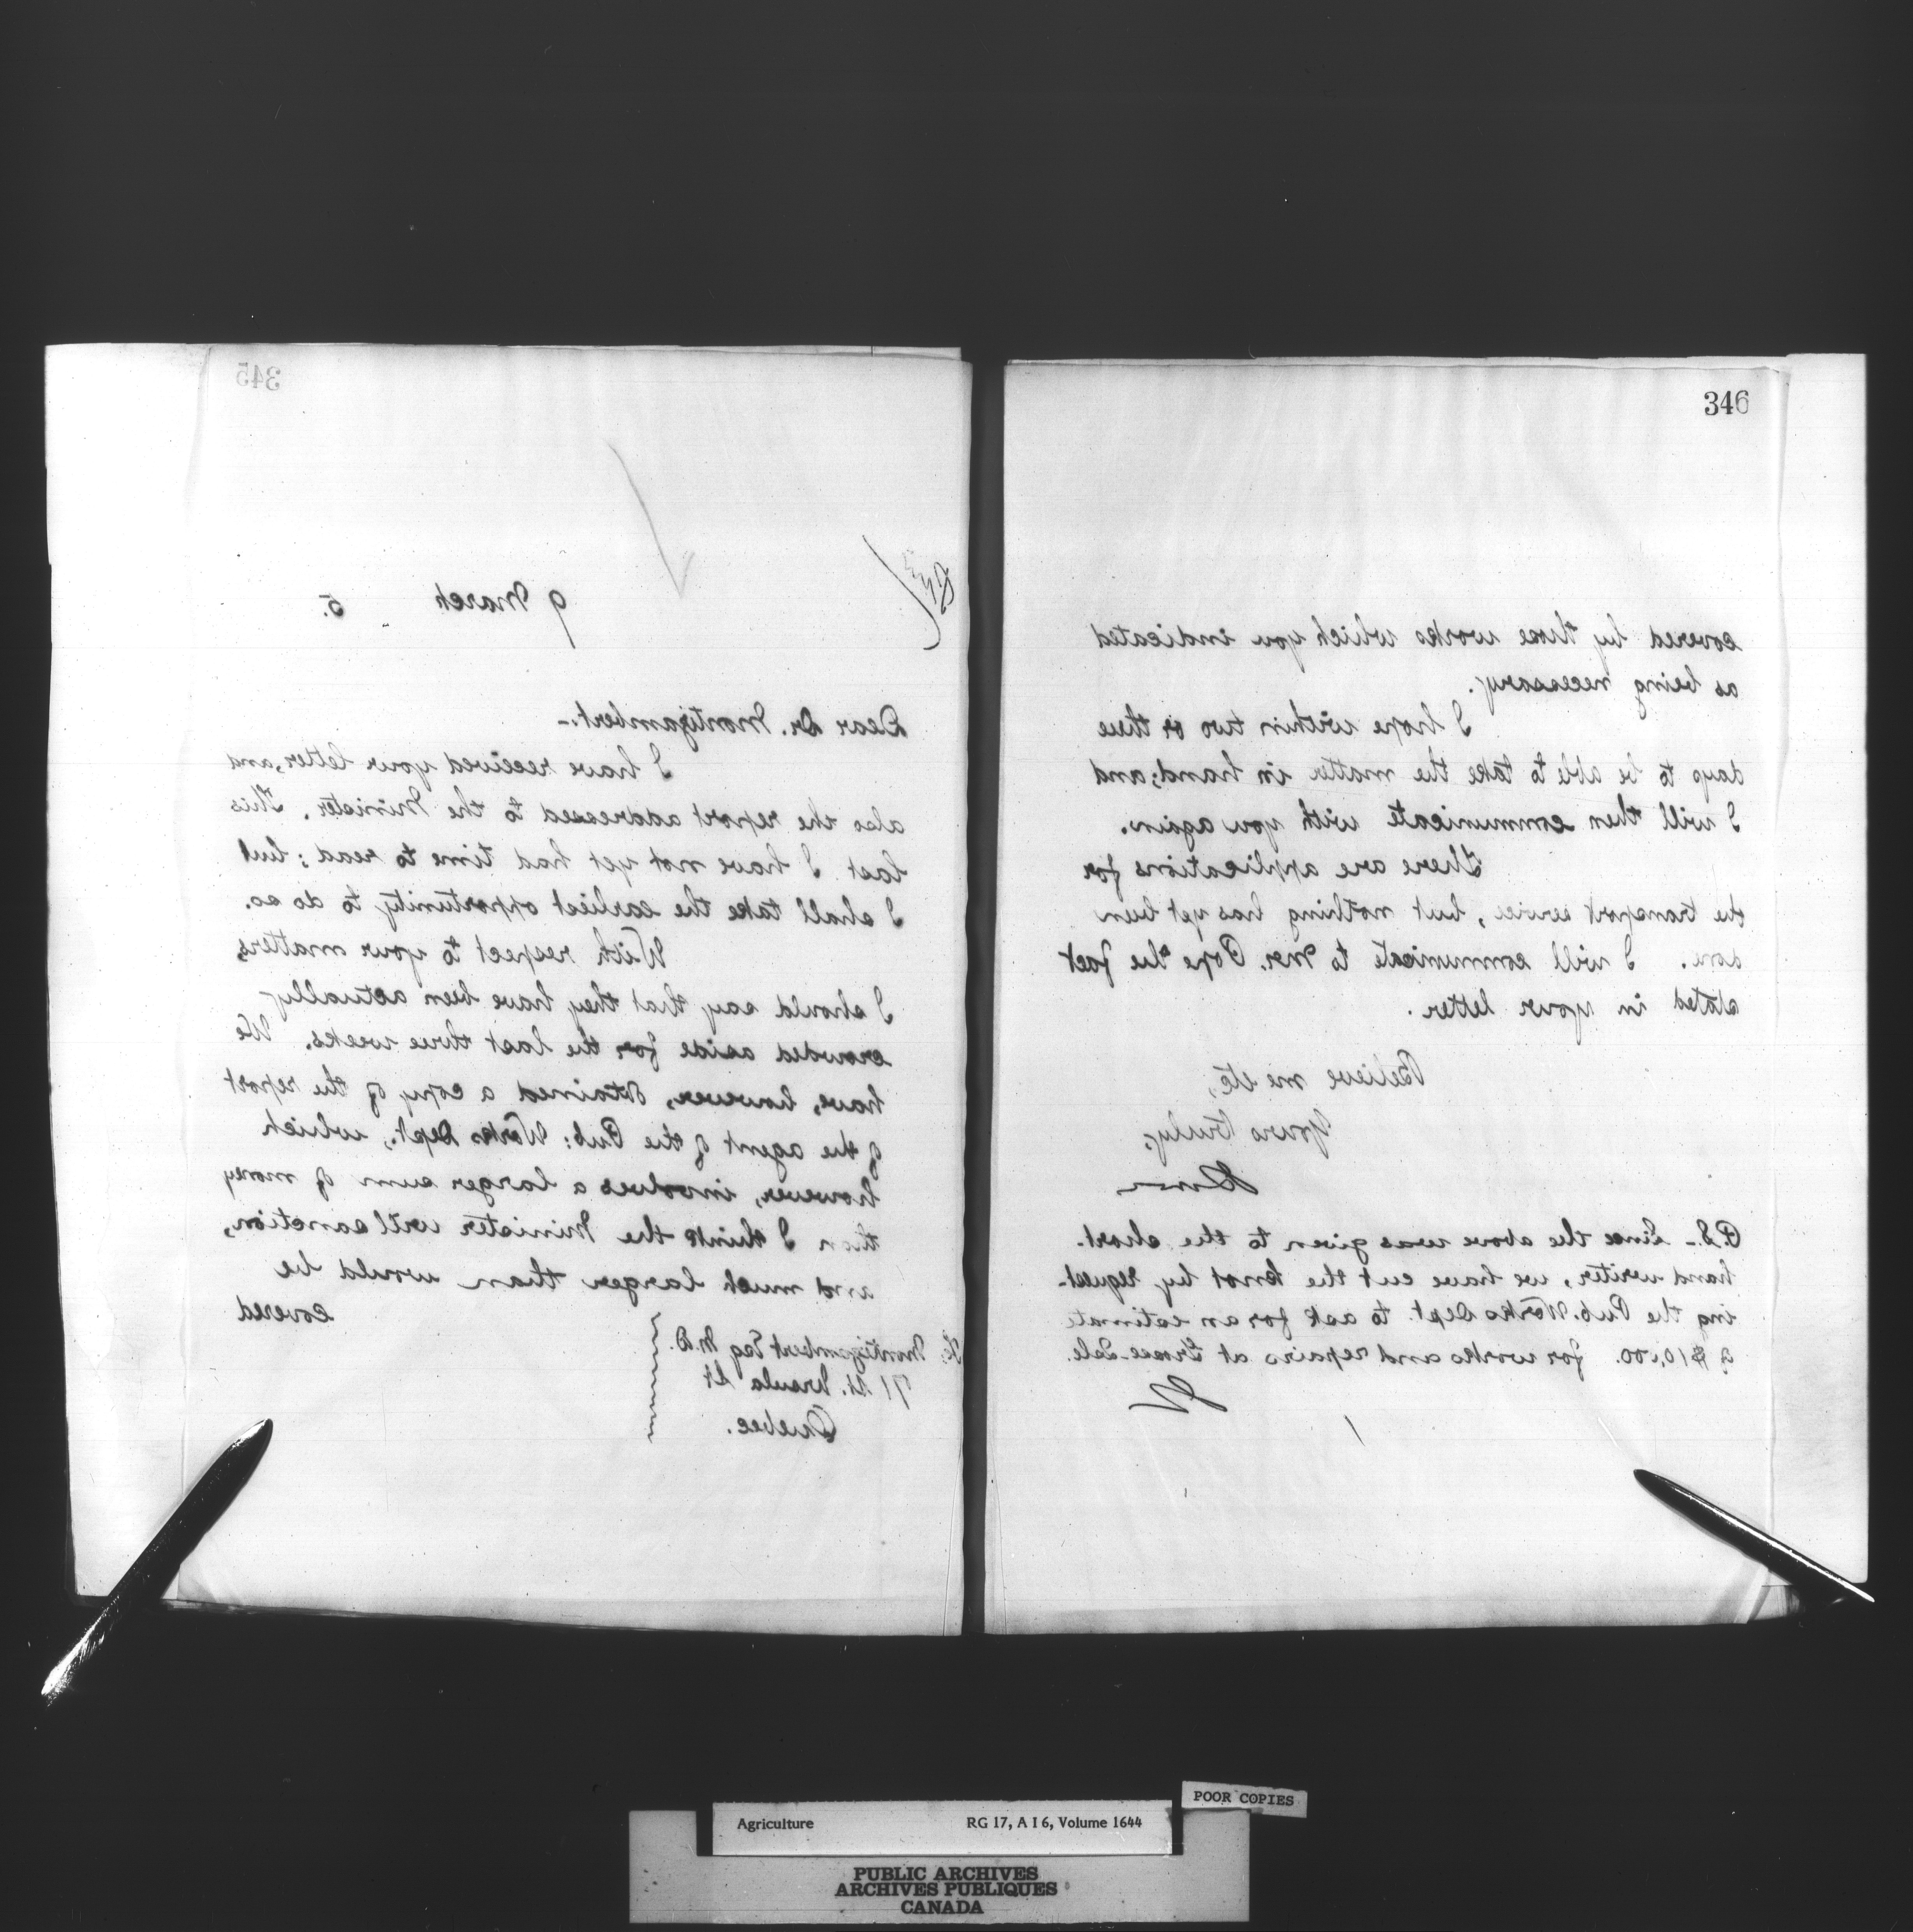 345
9 March 5.
Dear Dr. Montizambert.-
I have received your letter, and
also the report addressed to the Minister. This
last I have not yet had time to read; but
I shall take the earliest opportunity to do so.
With respect to your matters,
I should say that they have been actually
crowded aside for the last three weeks. We
have, however, obtained a copy of the report
of the agent of the Pub: Works Dept., which
however, involves a larger sum of money
than I think the Minister will sanction,
and much larger than would be
covered
Montizambert Esq M.D.
71 St. Ursula St
Quebec.
346
covered by those works which you indicated
as being necessary.
I hope within two or three
days to be able to take the matter in hand; and
I will then communicate with you again.
There are applications for
the transport service, but nothing has yet been
done. I will communicate to Mr. Pope the fact
stated in your letter.
Believe me etc,
Yours truly,
P.S. - Since the above was given to the short-
hand writer, we have cut the knot by request-
ing the Pub. Works Dept. to ask for an estimate
of $10,000. for works and repairs at Grosse Isle.
Agriculture RG 17, A I 6, Volume 1644
POOR COPIES
PUBLIC ARCHIVES
ARCHIVES PUBLIQUES
CANADA